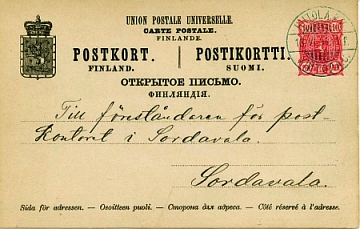 UNION POSTALE UNIVERSELLE.
CARTE POSTALE.
FINLANDE.
POSTKORT. | POSTIKORTTI.
FINLAND. SUOMI.
ОТКРЫТОЕ ПИСЬМО.
ФИНЛЯНДІЯ.
Till föreståndaren för post-
Kontoret i Sordavala.
Sordavala.
Sida för adressen. — Osoitteen puoli. — Сторона для адреса. — Côté réservé à l'adresse.